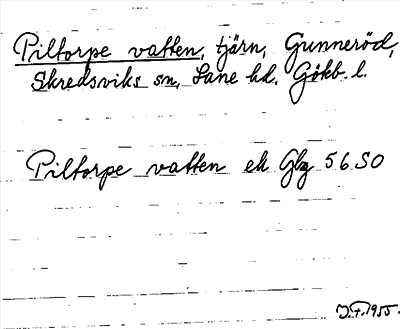 Piltorpe vatten, tjärn, Gunneröd,
Skredsviks sn, Lane hd. Gökb. l.
Piltorpe vatten ek Glg 56 SO
J.F. 1955.